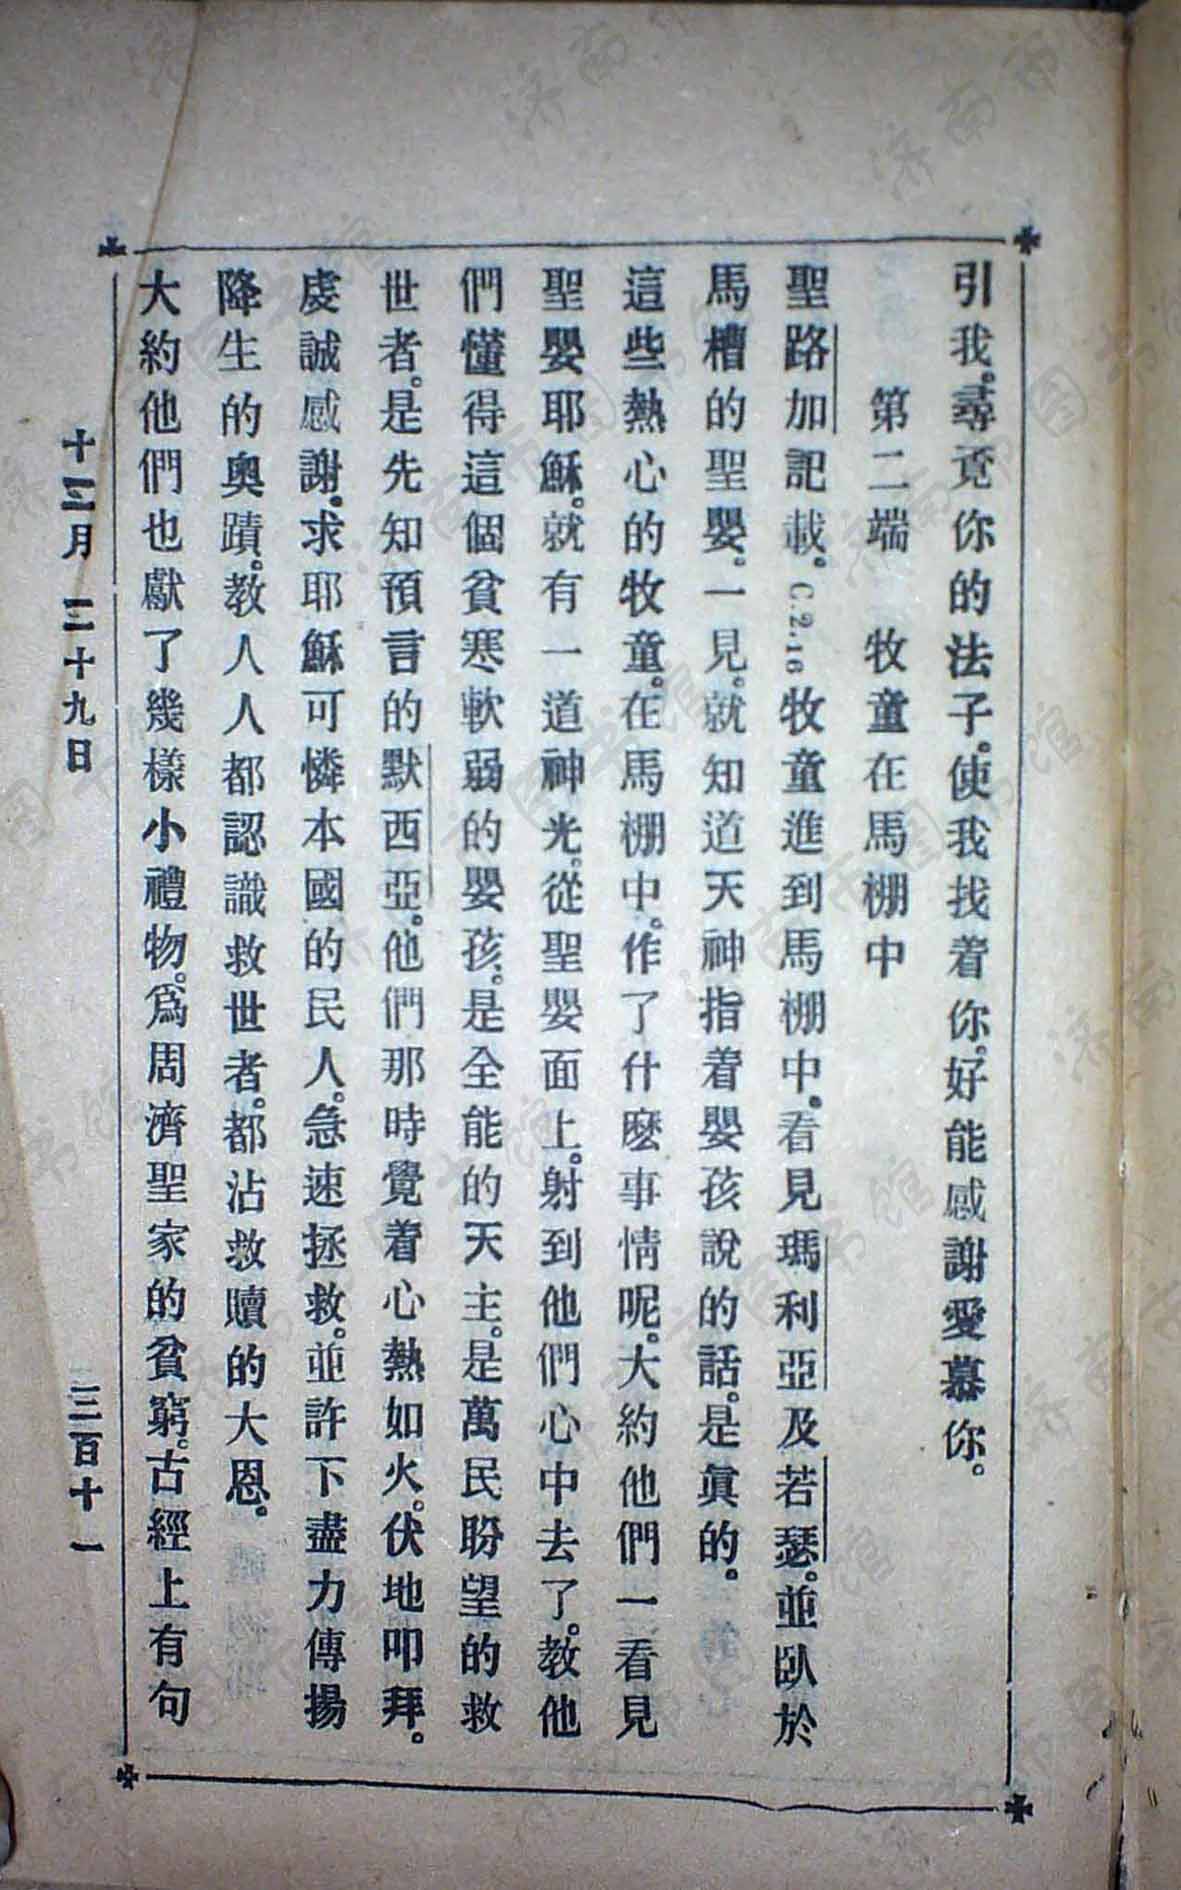 引我。尋覓你的法子。使我找着你。好能感謝愛慕你。
第二端　牧童在馬棚中
聖路加記載。C.2.16牧童進到馬棚中。看見瑪利亞及若瑟。並臥於
馬槽的聖嬰。一見。就知道天神指着嬰孩說的話。是眞的。
這些熱心的牧童。在馬棚中。作了什麽事情呢。大約他們一看見
聖嬰耶穌。就有一道神光。從聖嬰面上。射到他們心中去了。教他
們懂得這個貧寒軟弱的嬰孩。是全能的天主。是萬民盼望的救
世者。是先知預言的默西亞。他們那時覺着心熱如火。伏地叩拜。
虔誠感謝。求耶穌可憐本國的民人。急速拯救。並許下盡力傳揚
降生的奧蹟。教人人都認識救世者。都沾救贖的大恩。
大約他們也獻了幾樣小禮物。爲周濟聖家的貧窮。古經上有句
十二月　二十九日　三百十一
济南市图书馆